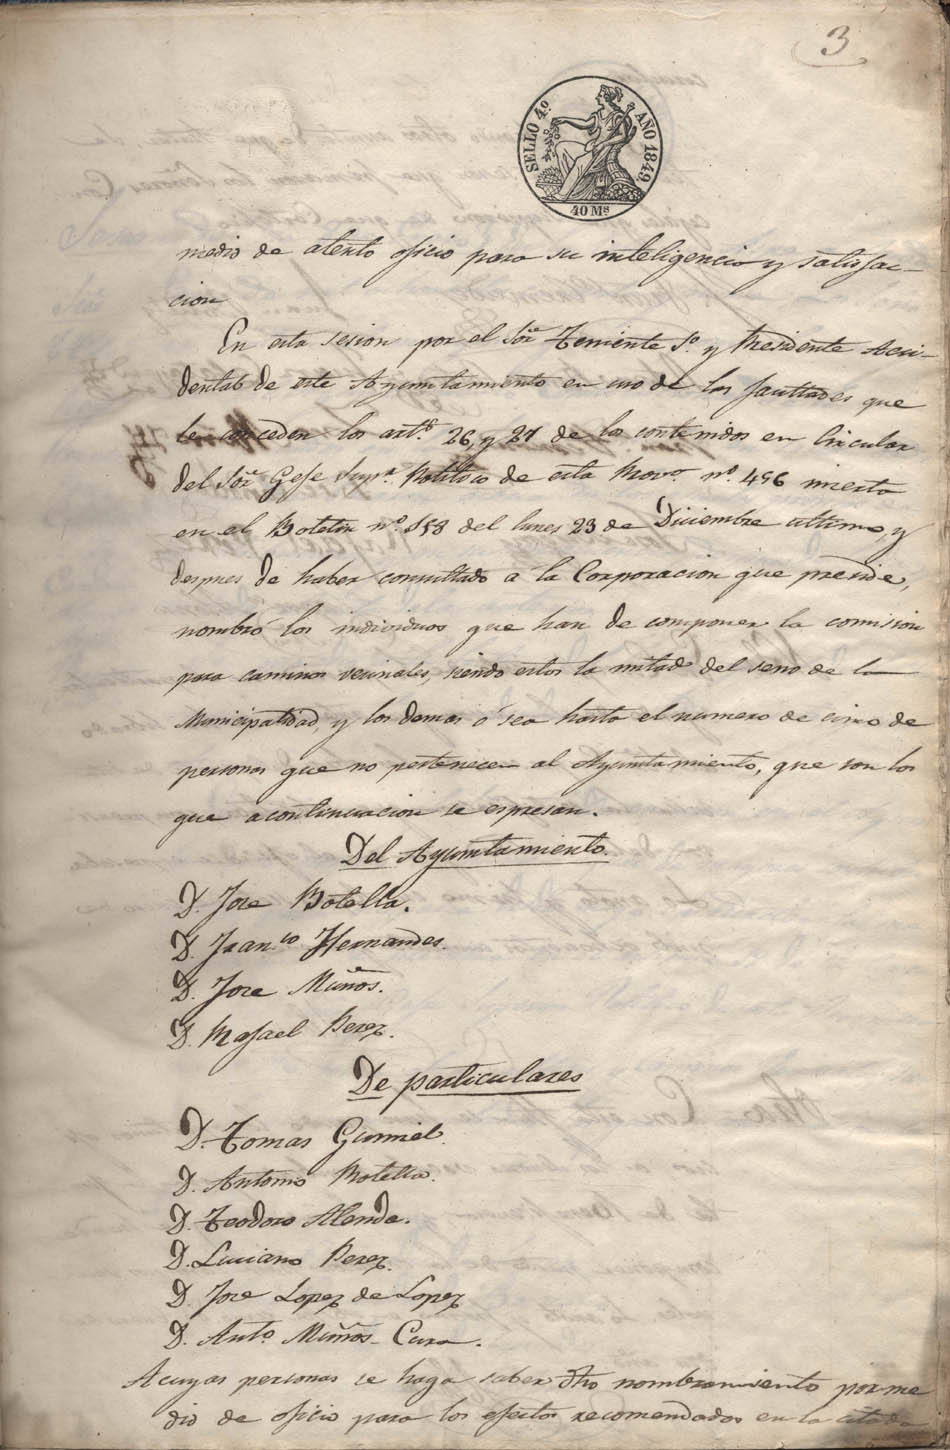 3
SELLO 4º. AÑO 1849.
40 Ms
medio de atento oficio para su inteligencia y satisfac-
cion
En esta sesion por el Sor. Teniente 1º. y Presidente Acci-
dental de este Ayuntamiento en uso de las facultades que
le conceden los artos. 26, y 27 de los contenidos en Circular
del Sor. Gefe Supr. Politico de esta Prova. nº. 496 inserta
en el Boletin nº. 158 del lunes 23 de Diciembre ultimo, y
despues de haber consultado a la Corporacion que preside,
nombró los individuos que han de componer la comision
para caminos vecinales, siendo estos la mitad del seno de la
Municipalidad, y los demas ó sea hasta el numero de cinco de
personas que no pertenecen al Ayuntamiento, que son los
que acontinuacion se espresan.
Del Ayuntamiento.
D. Jose Botella.
D. Franco. Hernandes.
D. Jose Muños.
D. Rafael Perez.
De particulares
D. Tomas Gumiel.
D. Antonio Botella.
D. Teodoro Alenda.
D. Luciano Perez.
D. Jose Lopez de Lopez
D. Anto. Muños - Cura.
Acuyas personas se haga saber dho nombramiento por me
dio de oficio para los efectos recomendados en la citada